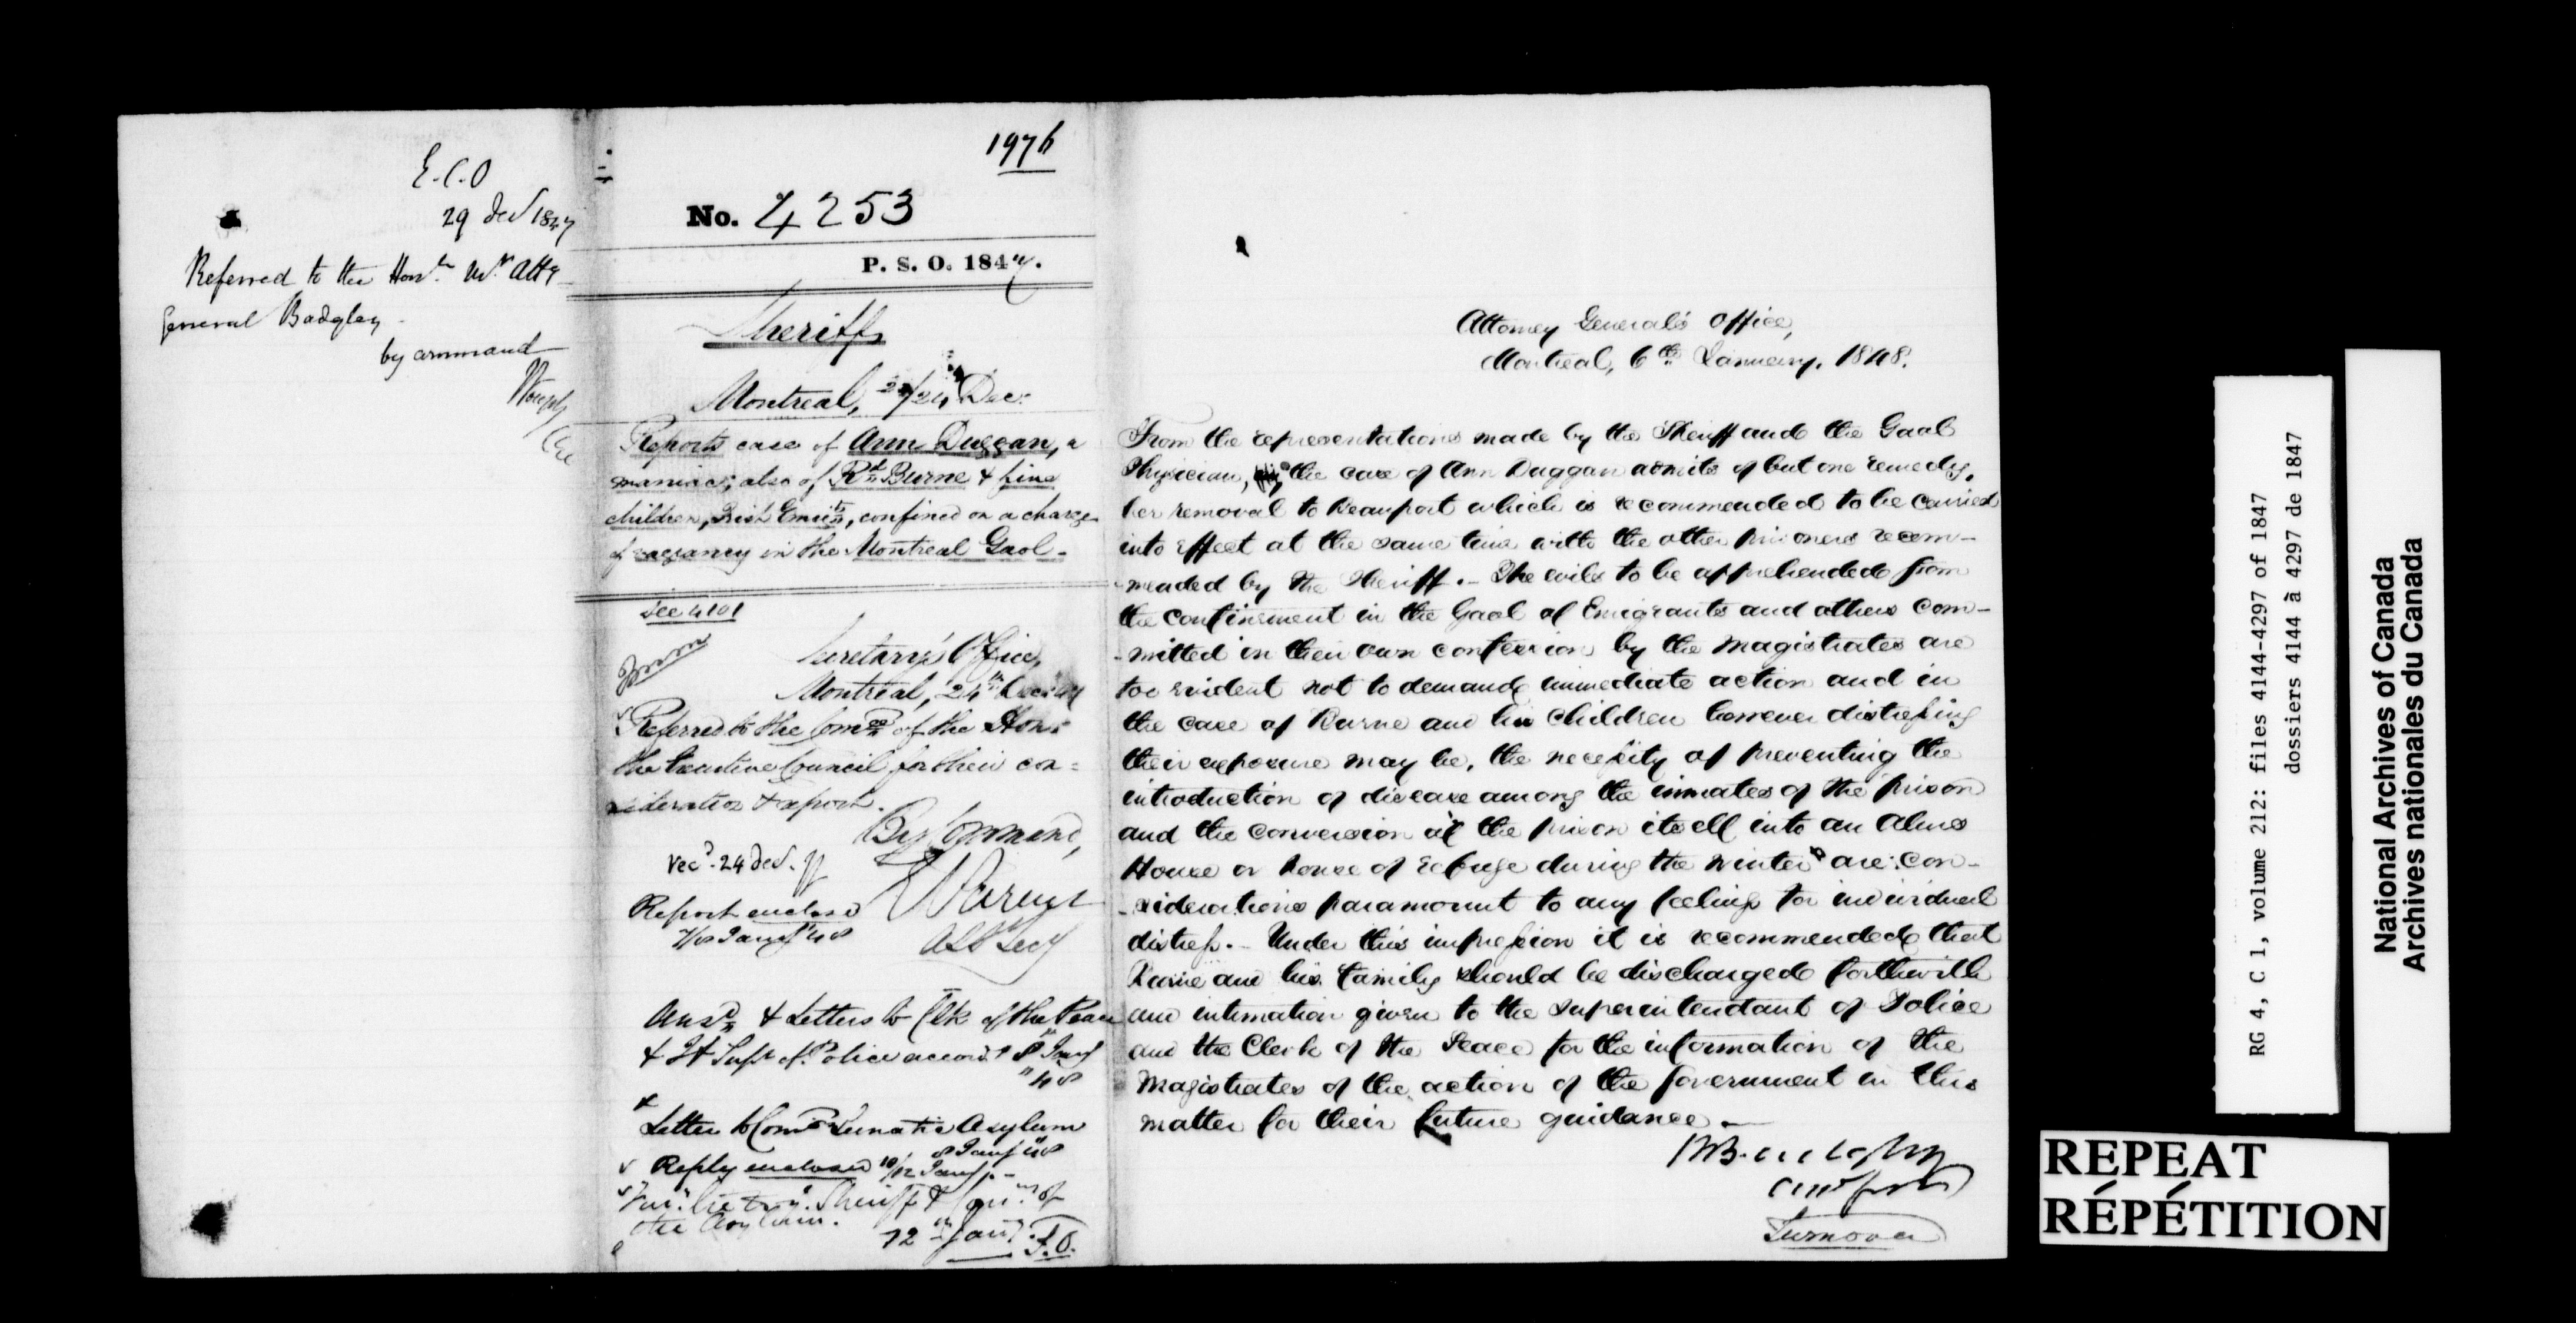 E.C.O
29 Decr 1847
Referred to the Honble Mr Atty
General Badgley -
by command
1976
No. 4253
P. S. O. 1847.
Sheriff
Montreal, 23/24 Dec:
Reports case of Ann Duggan, a
maniac; also of Rd Burne & five
children, Irish Emigts, confined on a charge
of vagrancy in the Montreal Gaol -
See 4101
Secretary's Office,
Montreal, 24th Decr 47
Referred to the Comee of the Honr
the Executive Council for their con=
sideration & report.
By Command,
Recd. 24 Decr.
Report enclosed
7/8 Jany 48
Ansd & Letters to Clk of the Peace
& Supt of Police accordt 8 Jany
" 48
Letter to Comrs Lunatic Asylum
8 Jany 48
Reply enclosed 10/12 Jany
Sheriff &
the Asylum.
12th Jany. T.O.
Attorney General's Office,
Montreal, 6th January, 1848.
From the representations made by the Sheriff and the Gaol
Physician, the case of Ann Duggan admits of but one remedy,
her removal to Beauport which is recommended to be carried
into effect at the same time with the other prisoners recom-
-mended by the Sheriff. - The evils to be apprehended from
the confinement in the Gaol of Emigrants and others com-
-mitted in their own confession by the Magistrates are
too evident not to demand immediate action and in
the case of Burne and his children however distressing
their exposure may be, the necessity of preventing the
introduction of disease among the inmates of the prison
and the conversion of the prison itself into an Alms
House or house of refuge during the winter are con-
-siderations paramount to any feeling for individual
distress. - Under this impression it is recommended that
Burne and his family should be discharged forthwith
and intimation given to the Superintendant of Police
and the Clerk of the Peace for the information of the
Magistrates of the action of the Government in this
matter for their future guidance -
Turnover
RG 4, C 1, volume 212: files 4144-4297 of 1847
dossiers 4144 à 4297 de 1847
National Archives of Canada
Archives nationales du Canada
REPEAT
RÉPÉTITION